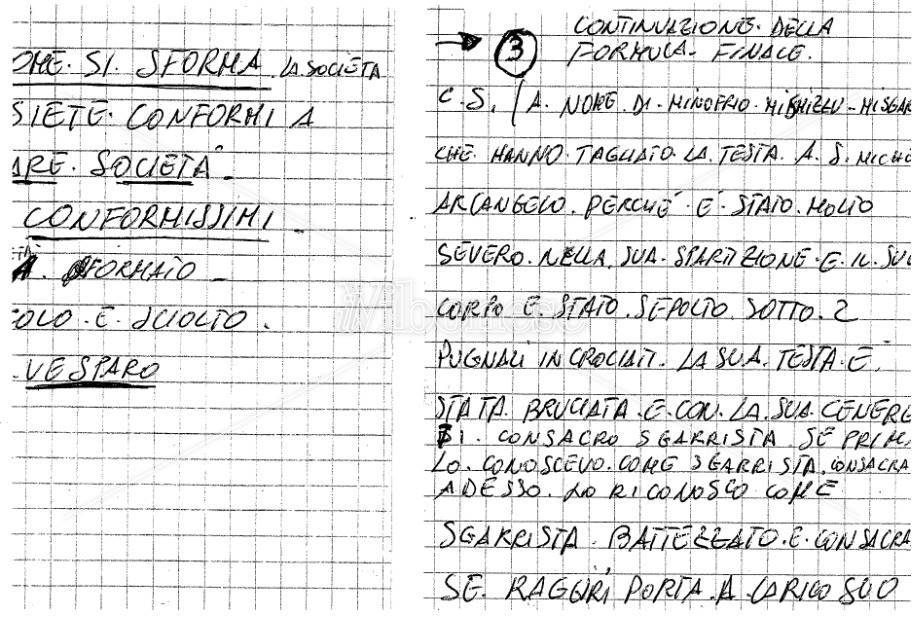 OME. SI. SFORMA. LA SOCIETÀ
SIETE. CONFORMI A
ARE. SOCIETÀ.
CONFORMISSIMI
TÀ
A. SFORMATO
OLO. E. SCIOLTO.
VESPARO
3 CONTINUAZIONE. DELLA
FORMULA. FINALE.
C.S. / A. NOME. DI. MINOFRIO. - MISGAR
CHE. HANNO. TAGLIATO. LA. TESTA. A. S. MICHE
ARCANGELO. PERCHÉ. È. STATO. MOLTO
SEVERO. NELLA. SUA. SPARTIZIONE. E. IL. SUO
CORPO È. STATO. SEPOLTO. SOTTO. 2
PUGNALI INCROCIATI. LA SUA. TESTA. È.
STATA. BRUCIATA. E. CON. LA. SUA. CENERE
SI. CONSACRO SGARRISTA. SE PRIMA
LO. CONOSCEVO. COME SGARRISTA. CONSACRA
ADESSO. LO RICONOSCO COME
SGARRISTA. BATTEZZATO. E. CONSACRA
SE. RAGGIRI PORTA. A. CARICO SUO
ilVibonese